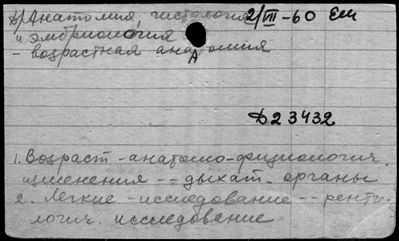 б) Анатомия, гистология 2/VIII-60 Ем
и эмбриология
- возрастная анатомия
Д 23432
1. Возраст - анатомо-физиологич.
изменения -- дыхат. органы
2. Легкие - исследование -- рентг
логич. исследование